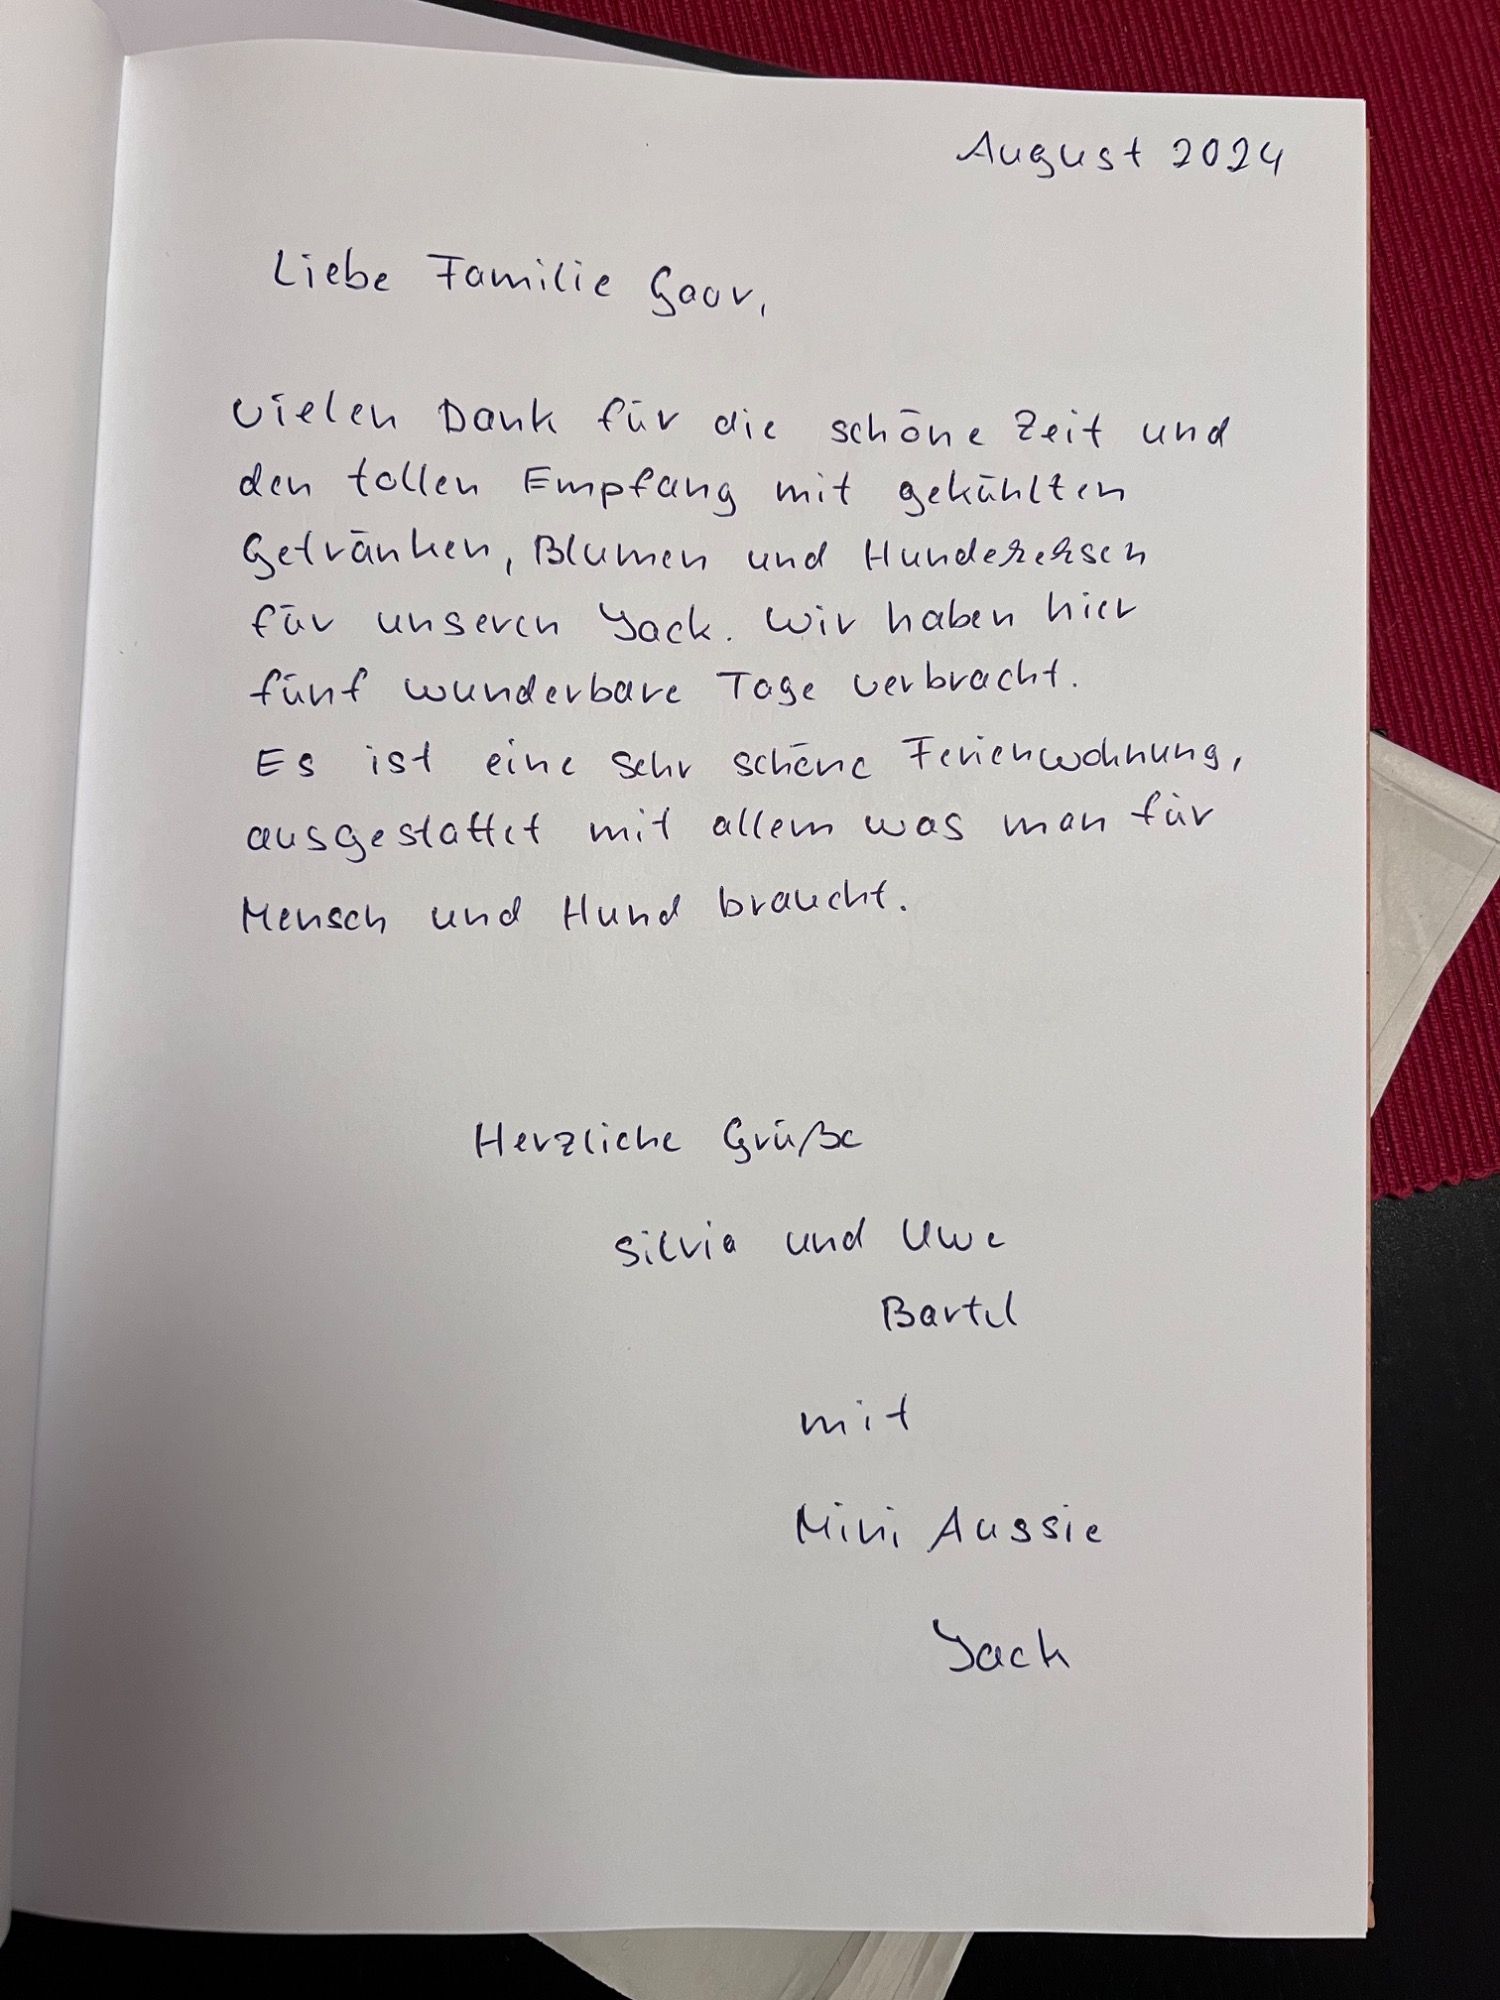 August 2024
Liebe Familie Gaar,
vielen Dank für die schöne Zeit und
den tollen Empfang mit gekühlten
Getränken, Blumen und Hundekeksen
für unseren Jack. Wir haben hier
fünf wunderbare Tage verbracht.
Es ist eine sehr schöne Ferienwohnung,
ausgestattet mit allem was man für
Mensch und Hund braucht.
Herzliche Grüße
Silvia und Uwe
Bartel
mit
Mini Aussie
Jack